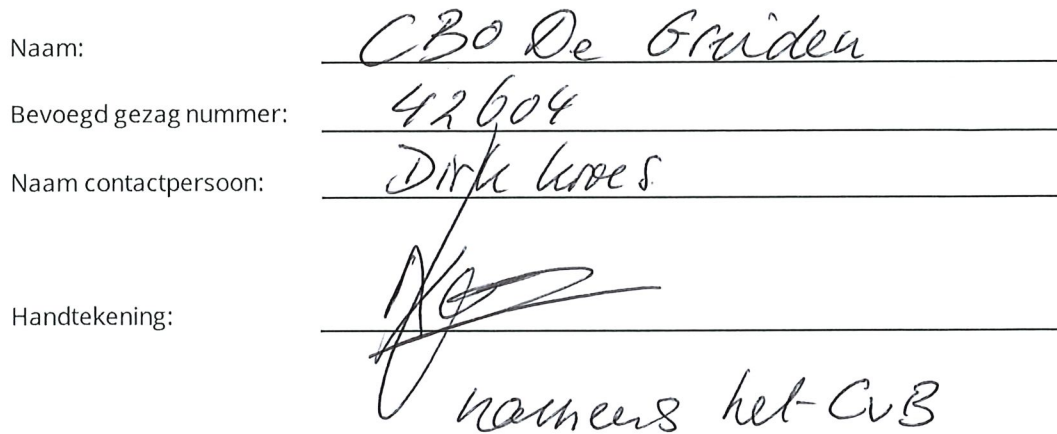 Naam: CBO De Greiden
Bevoegd gezag nummer: 42604
Naam contactpersoon: Dirk Kroes
Handtekening:
namens het CvB